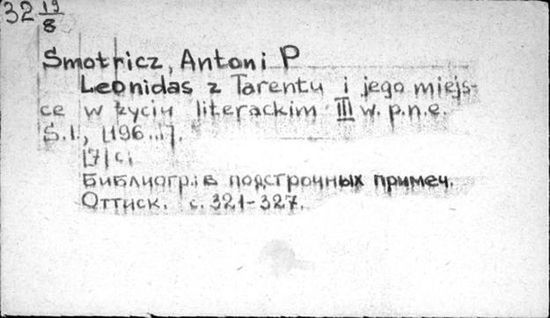 32 19/8
Smotricz, Antoni P
Leonidas z Tarentu i jego miejs-
ce w życiu literackim III w. p.n.e.
S.l., [196...].
[7] c.
Библиогр. в подстрочных примеч.
Оттиск. с. 321-327.